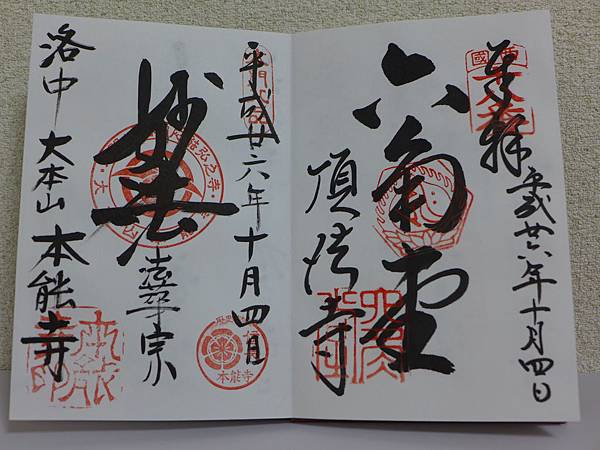 奉拝
平成廿六年十月四日
六角堂
頂法寺
平成廿六年十月四日
妙法
法華宗
洛中 大本山 本能寺
本能寺